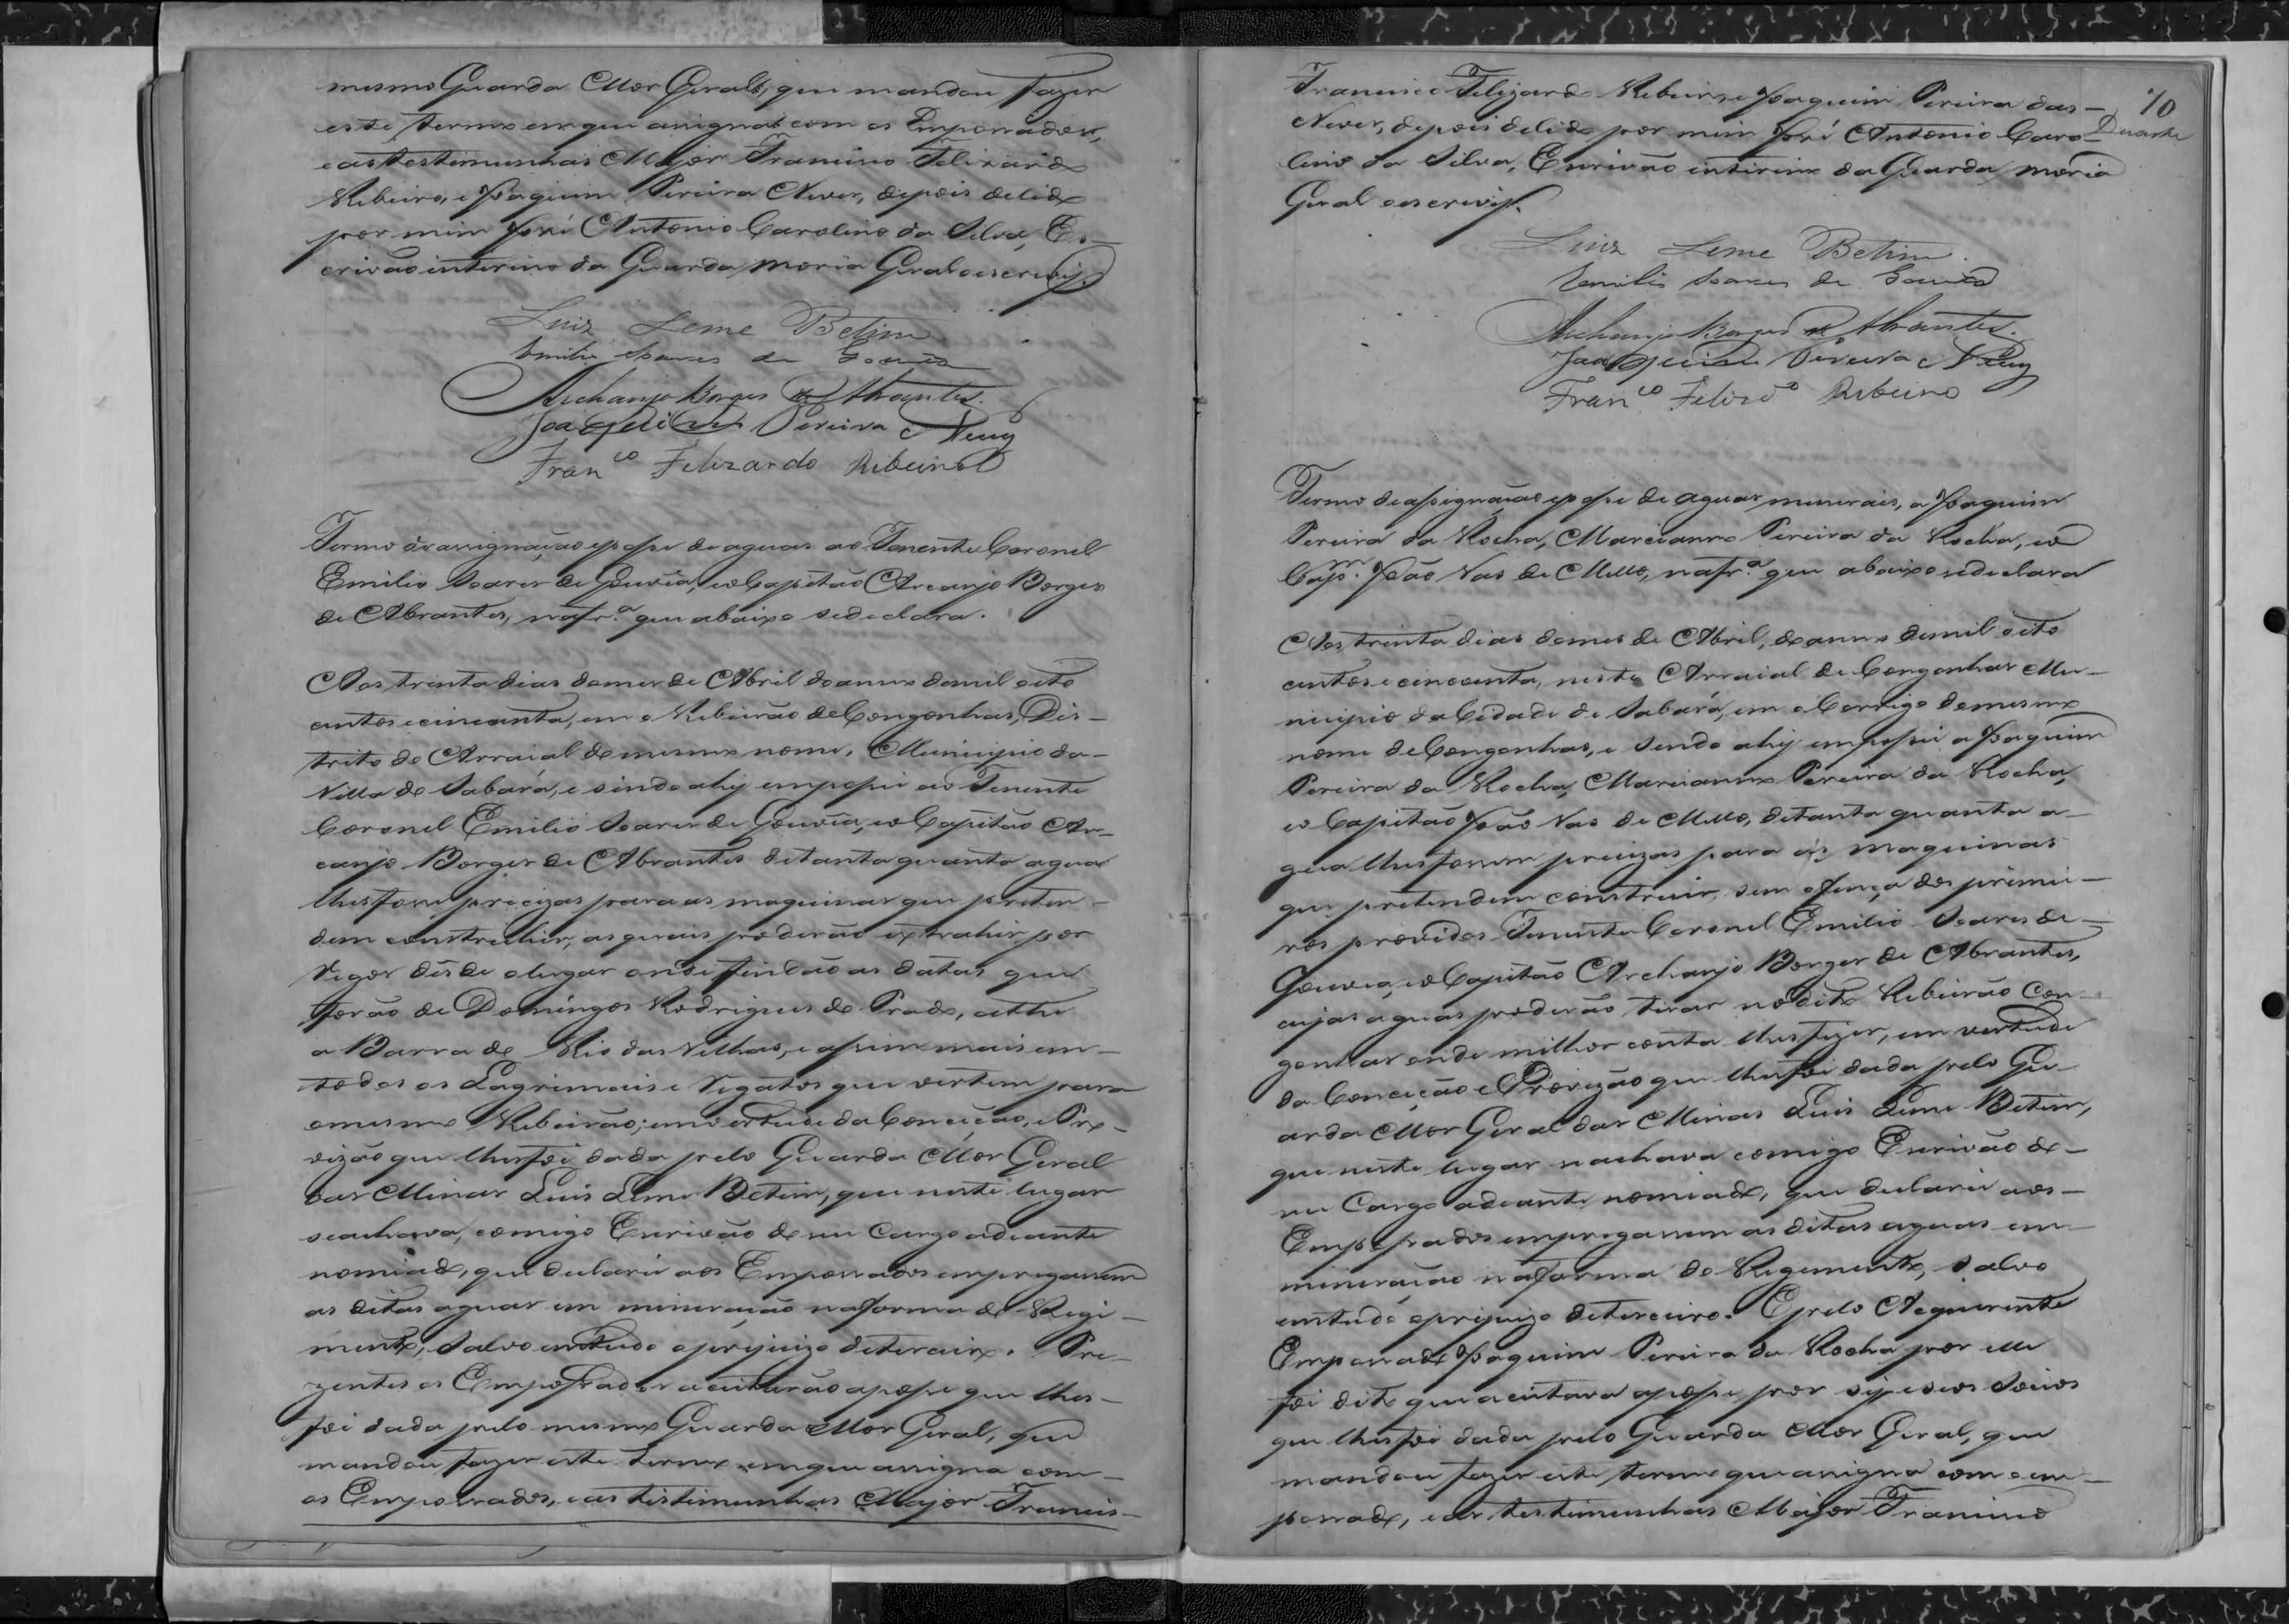 mesmo Guarda Mor Geral, que mandou fazer
este termo em que assigna com os Empossados,
e as testimunhas Major Francisco Felizardo
Ribeiro, e Joaquim Pereira Neves, depois de lido
por mim José Antonio Carolino da Silva, Es-
crivão interino da Guarda moria Geral o escrevij.
Luiz Leme Betim
Emilio Soares de Gouvêa
Archanjo Borges de Abrantes.
Joaquim Pereira Neves
Fran.co Felizardo Ribeiro
Termo de assignação e posse de aguas ao Tenente Coronel
Emilio Soares de Gouvêa, e o Capitão Arcanjo Borges
de Abrantes, na fr.a que abaixo se declara.
Aos trinta dias do mes de Abril do anno de mil oito
centos e cincoenta, em o Ribeirão de Congonhas, Dis-
trito do Arraial do mesmo nome, Municipio da
Villa de Sabará, e sendo ahy empossei ao Tenente
Coronel Emilio Soares de Gouvêa, e o Capitão Ar-
canjo Borges de Abrantes de tanta quanta agua
lhes forem precizas para as maquinas que preten-
dem construhir, as quais poderão extrahir por
Regos desde o lugar onde findão as datas que
forão de Domingos Rodrigues do Prado, athe
a Barra do Rio das Velhas, e assim mais em
todos os Lagrimais e Regatos que vertem para
o mesmo Ribeirão; em vertude da Conceição, e Pro-
vizão que lhes foi dada pelo Guarda Mor Geral
das Minas Luis Leme Betim, que neste lugar
se achava, comigo Escrivão de seu Cargo adeante
nomiado, que declarou aos Empossados empregarem
as ditas aguas em mineração na forma do Regi-
mento, salvo em tudo o prejuizo de terceiro. Pre-
zentes os Empossados aceitarão a posse que lhes
foi dada pelo mesmo Guarda Mor Geral, que
mandou fazer este termo em que assigna com
os Empossados, e as testimunhas Major Francis-
70
Duarte
Francisco Felizardo Ribeiro, e Joaquim Pereira das
Neves, depois de lido por mim José Antonio Caro-
lino da Silva, Escrivão interino da Guarda moria
Geral o escrevij.
Luiz Leme Betim.
Emilio Soares de Gouvêa
Archanjo Borges de Abrantes.
Joaquim Pereira Neves
Fran.co Felizdo Ribeiro
Termo de assignação e posse de aguas minerais, a Joaquim
Pereira da Rocha, Marcianno Pereira da Rocha, e o
Cap.m João Vas de Mello, na fr.a que abaixo se declara
Aos trinta dias do mes de Abril, do anno de mil oito
centos e cincoenta, neste Arraial de Congonhas Mu-
nicipio da Cidade de Sabará, em o Corrego do mesmo
nome de Congonhas, e sendo ahij empossei a Joaquim
Pereira da Rocha, Marcianno Pereira da Rocha,
e o Capitão João Vas de Mello, de tanta quanta a-
gua lhes forem precizas para as maquinas
que pretendem construir, sem ofença dos primei-
ros providos Tenente Coronel Emilio Soares de
Gouvea, e o Capitão Archanjo Borges de Abrantes,
cujas aguas poderão tirar no dito Ribeirão Con-
gonhas onde milhor conta lhes fizer, em vertude
da Conceição e Provizão que lhes foi dada pelo Gu-
arda Mor Geral das Minas Luis Leme Betim,
que neste lugar se achava comigo Escrivão de
seu Cargo adeante nomiado, que declarou aos
Empossados empregarem as ditas aguas em
mineração na forma do Regimento, salvo
em tudo o prejuizo de terceiro. E pelo Requerente
Empossado Joaquim Pereira da Rocha por elle
foi dito que aceitava a posse por sy e seos Socios
que lhes foi dada pelo Guarda Mor Geral, que
mandou fazer este termo que assigna com o em-
possado, e as testimunhas Major Francisco